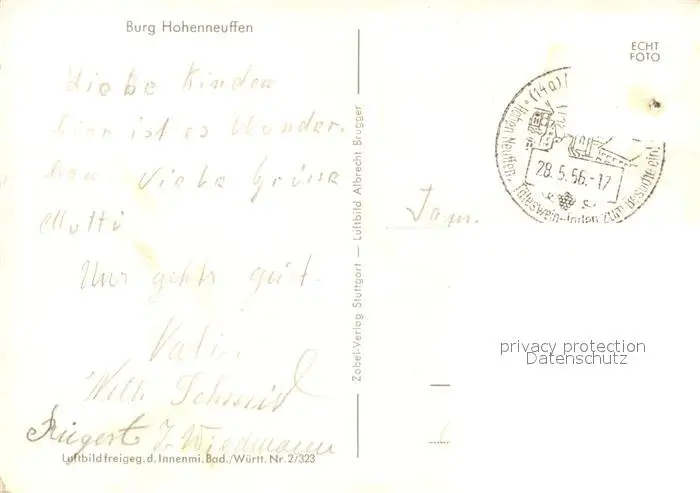 Burg Hohenneuffen
ECHT
FOTO
Liebe Kinder
hier ist es Wunder-
bar. Viele Grüse
Mutti
Uns geht's gut.
Vati.
Wilh. Schmid
Riegert J. Wiedmann
Luftbildfreigeg. d. Innenmi. Bad./Württ. Nr. 2/323
Zobel-Verlag Stuttgart — Luftbild Albrecht Brugger
Fam.
(14a)
Hohen Neuffen
28.5.56.-17
Täleswein laden zum Besuche ein!
privacy protection
Datenschutz